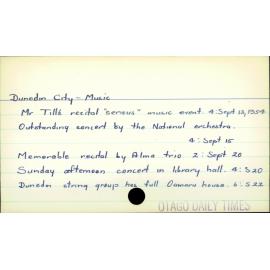 Dunedin City - Music
Mr Till's recital "serious" music event. 4: Sept 13, 1954
Outstanding concert by the National orchestra.
4: Sept 15
Memorable recital by Alma trio 2: Sept 20
Sunday afternoon concert in library hall. 4: S20
Dunedin string group has full Oamaru house. 6: S22
OTAGO DAILY TIMES